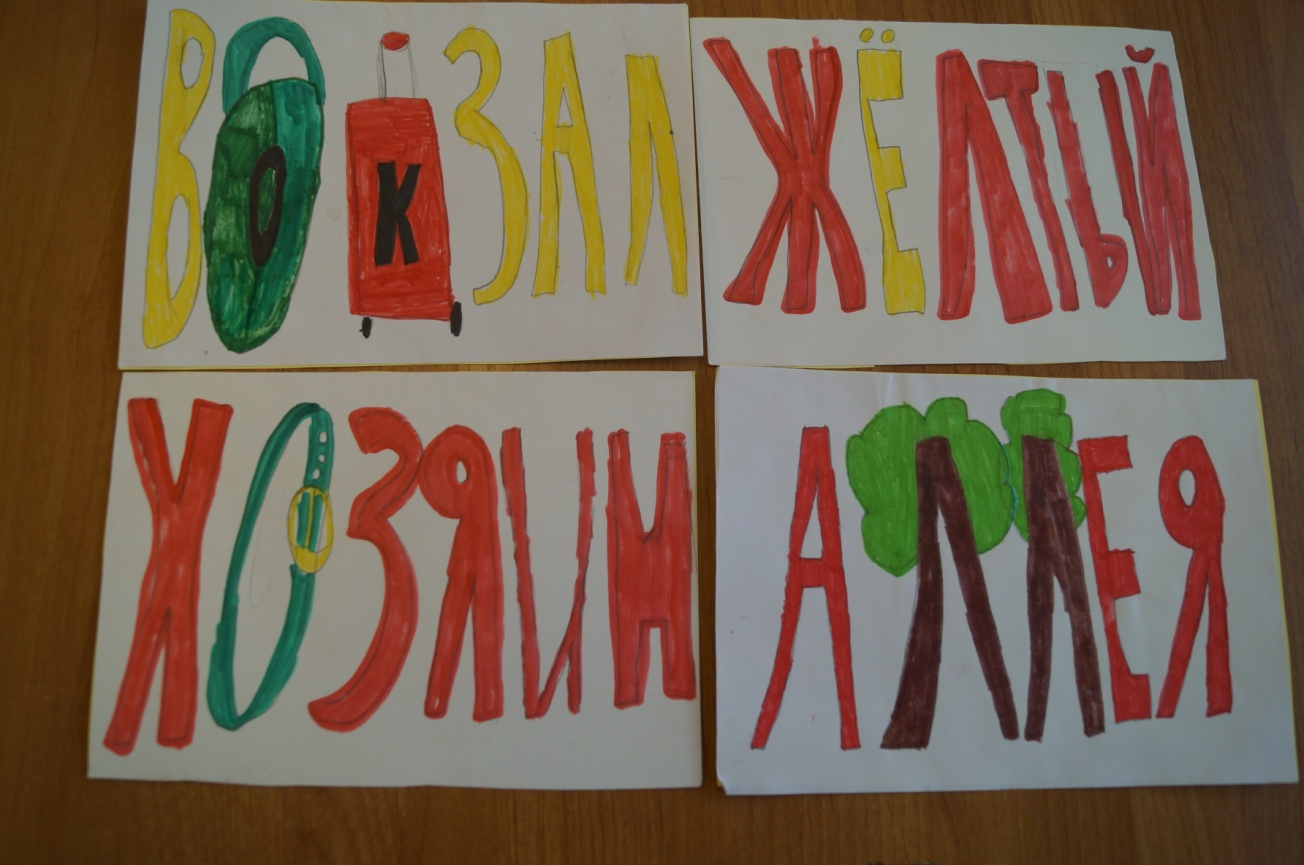 ВОКЗАЛ
ЖЁЛТЫЙ
ХОЗЯИН
АЛЛЕЯ